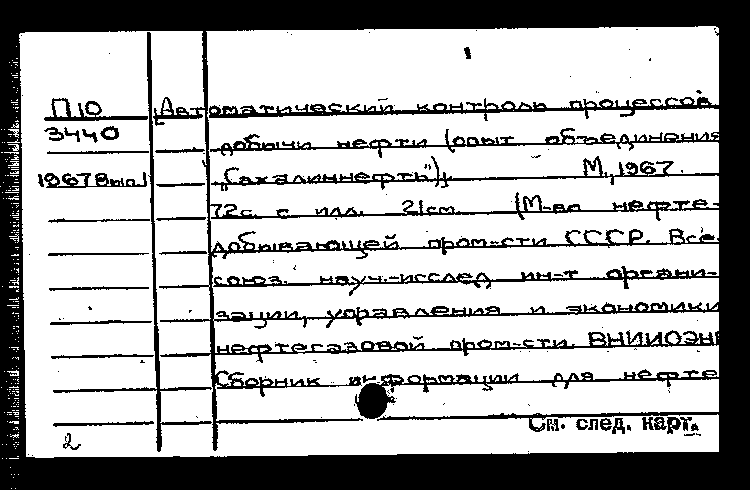 П10 [Автоматический контроль процессов
3440 добычи нефти (опыт объединения
1967 Вып.1 „Сахалиннефть"). М., 1967.
72с. с илл. 21см. (М-во нефте-
добывающей пром-сти СССР. Все-
союз. науч.-исслед. ин-т органи-
зации, управления и экономики
нефтегазовой пром-сти. ВНИИОЭНГ
Сборник информации для нефте
См. след. карт.
2